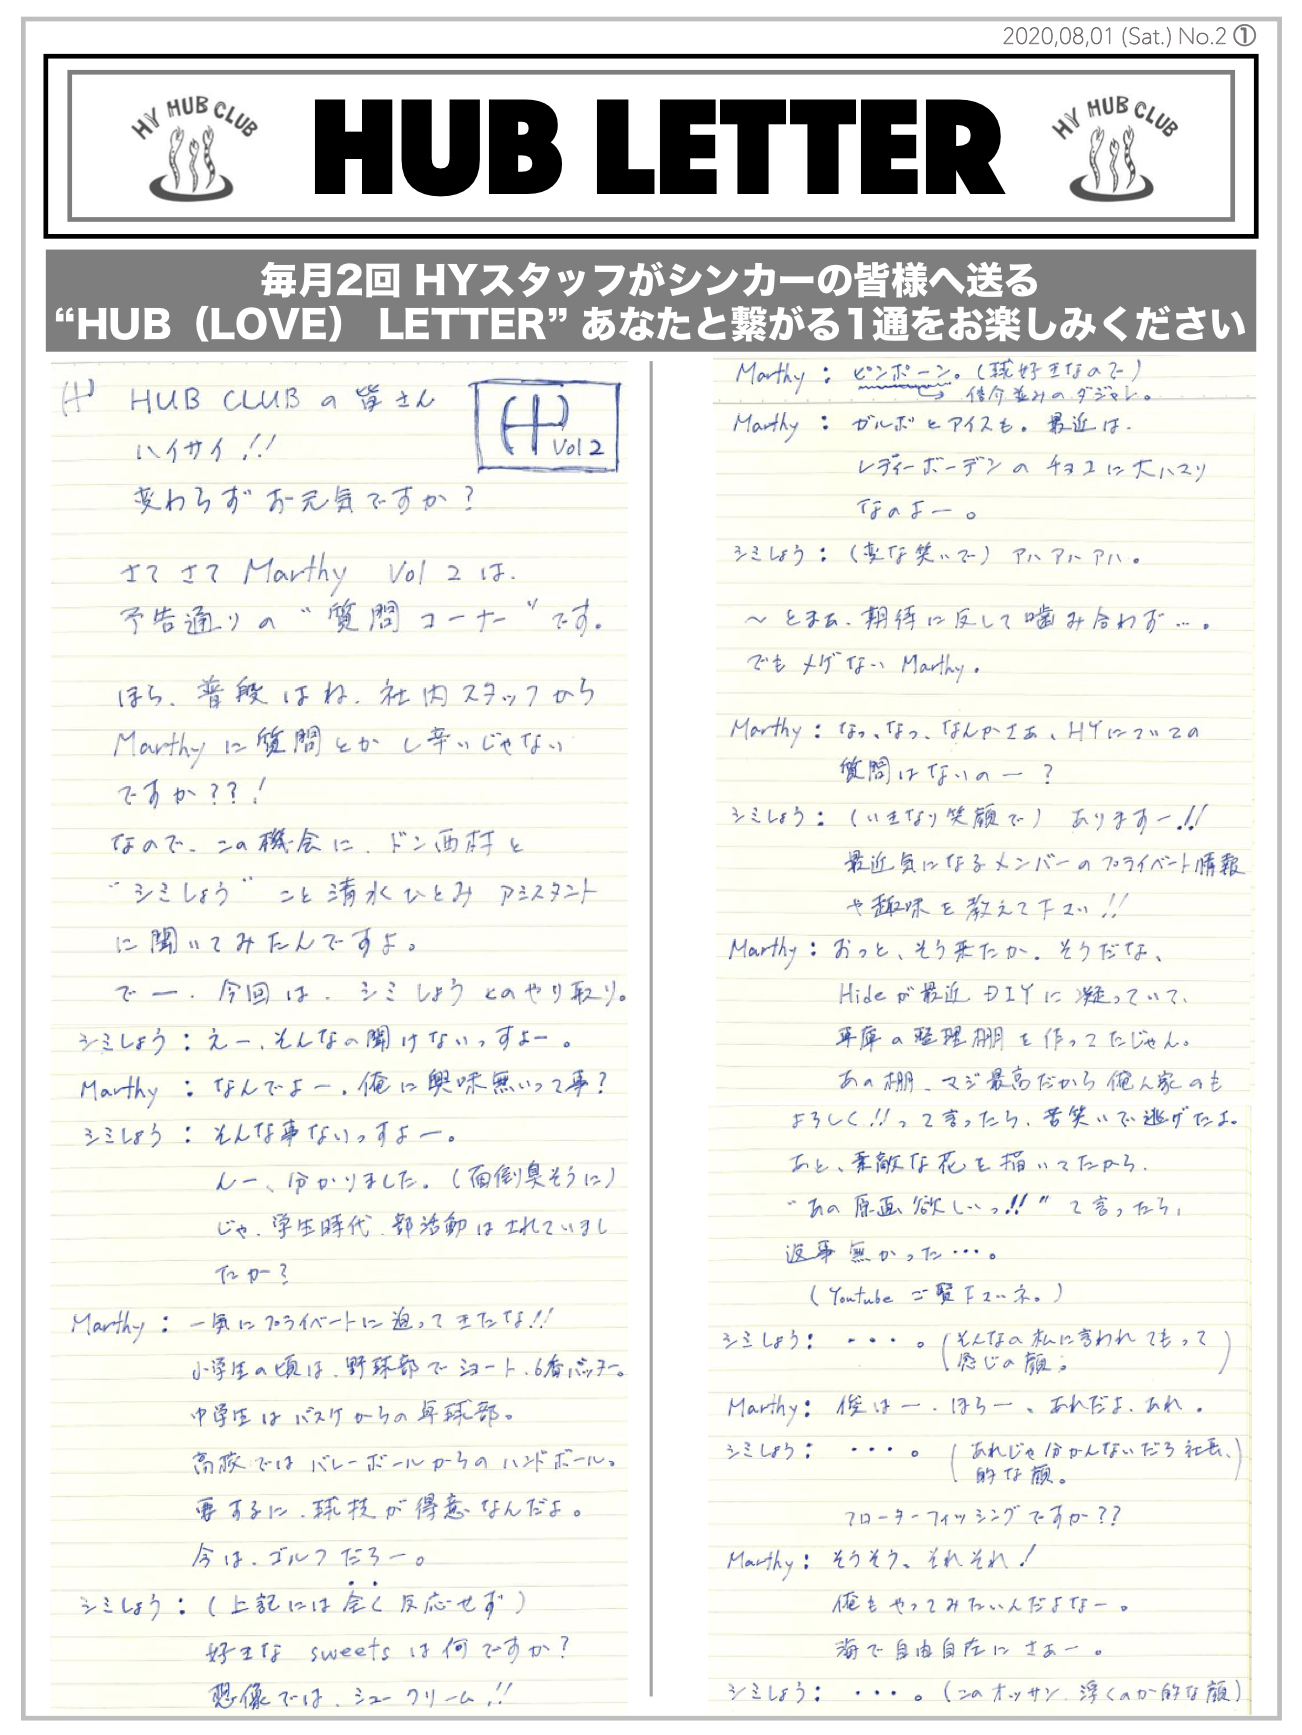 2020,08,01 (Sat.) No.2 ①
HY HUB CLUB
HUB LETTER
HY HUB CLUB
毎月2回 HYスタッフがシンカーの皆様へ送る
“HUB（LOVE） LETTER” あなたと繋がる1通をお楽しみください
HUB CLUBの皆さん
ハイサイ!!
変わらずお元気ですか?
Vol 2
さてさて Marthy Vol 2 は、
予告通りの “質問コーナー” です。
ほら、普段はね、社内スタッフから
Marthyに質問とかし辛いじゃない
ですか??!
なので、この機会に、ドン西村と
“シミしょう” こと清水ひとみ アシスタント
に聞いてみたんですよ。
でー、今回は、シミしょうとのやり取り。
シミしょう：えー、そんなの聞けないっすよー。
Marthy：なんでよー、俺に興味無いって事?
シミしょう：そんな事ないっすよー。
んー、分かりました。(面倒臭そうに)
じゃ、学生時代、部活動はされていまし
たか?
Marthy：一気にプライベートに迫ってきたな!!
小学生の頃は、野球部でショート、6番バッター。
中学生はバスケからの卓球部。
高校ではバレーボールからのハンドボール。
要するに、球技が得意なんだよ。
今は、ゴルフだろー。
シミしょう：(上記には全く反応せず)
好きな sweets は何ですか?
想像では、シュークリーム!!
Marthy：ピンポーン。(球好きなので)
信介並みのダジャレ。
Marthy：ガルボとアイスも。最近は、
レディーボーデンのチョコに大ハマリ
なのよー。
シミしょう：(変な笑いで) アハアハアハ。
〜とまぁ、期待に反して噛み合わず…。
でもメゲない Marthy。
Marthy：なっ、なっ、なんかさぁ、HYについての
質問はないのー?
シミしょう：(いきなり笑顔で) ありますー!!
最近気になるメンバーのプライベート情報
や趣味を教えて下さい!!
Marthy：おっと、そう来たか。そうだな、
Hideが最近DIYに凝っていて、
車庫の整理棚を作ってたじゃん。
あの棚、マジ最高だから俺ん家のも
よろしく!!って言ったら、苦笑いで逃げたよ。
あと、素敵な花を描いてたから、
“あの原画欲しいっ!!” て言ったら、
返事無かった・・・。
(Youtube ご覧下さいネ。)
シミしょう：・・・。(そんなの私に言われてもって
感じの顔。)
Marthy：俊はー、ほらー、あれだよ、あれ。
シミしょう：・・・。(あれじゃ分かんないだろ社長、
的な顔。)
フローターフィッシングですか??
Marthy：そうそう、それそれ!
俺もやってみたいんだよなー。
海で自由自在にさぁー。
シミしょう：・・・。(このオッサン、浮くのか的な顔)